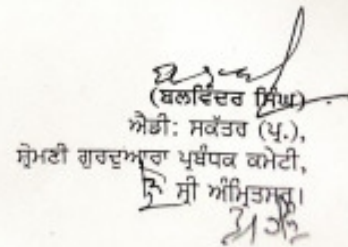 (ਬਲਵਿੰਦਰ ਸਿੰਘ)
ਐਡੀ: ਸਕੱਤਰ (ਪ੍ਰ.),
ਸ਼੍ਰੋਮਣੀ ਗੁਰਦੁਆਰਾ ਪ੍ਰਬੰਧਕ ਕਮੇਟੀ,
ਸ੍ਰੀ ਅੰਮ੍ਰਿਤਸਰ।